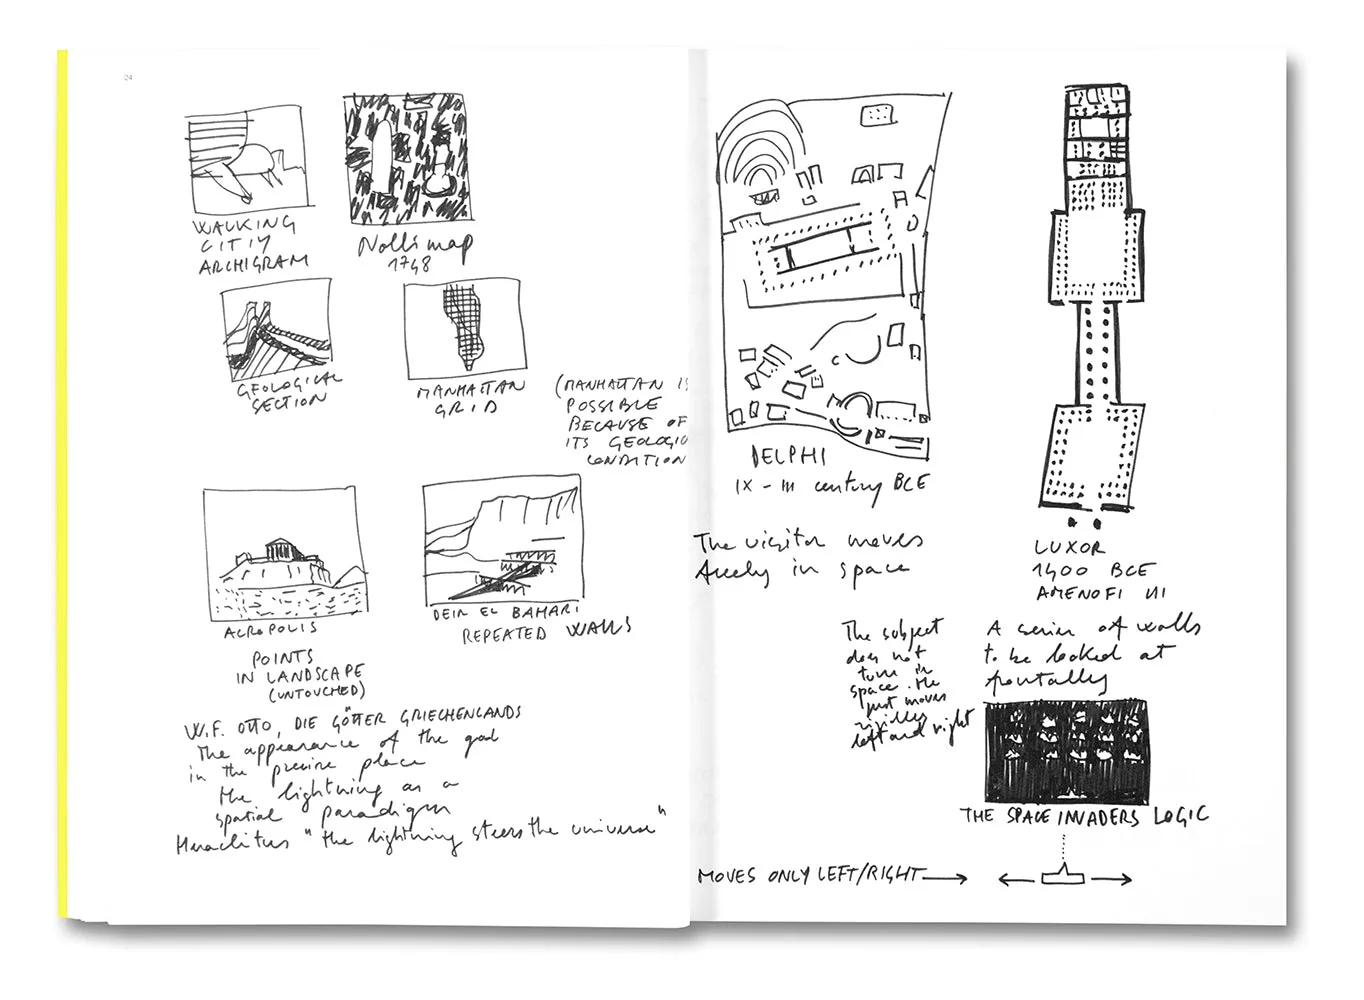 04
WALKING
CITY
ARCHIGRAM
Nolli map
1748
GEOLOGICAL
SECTION
MANHATTAN
GRID
(MANHATTAN IS
POSSIBLE
BECAUSE OF
ITS GEOLOGIC
CONDITION
ACROPOLIS
DEIR EL BAHARI
REPEATED WALLS
POINTS
IN LANDSCAPE
(UNTOUCHED)
W.F. OTTO, DIE GÖTTER GRIECHENLANDS
The appearance of the god
in the precise place
the lightning as a
spatial paradigm
Heraclitus "the lightning steers the universe"
DELPHI
IX - III century BCE
The visitor moves
freely in space
LUXOR
1400 BCE
AMENOFI III
The subject
does not
turn in
space. He
just moves
rigidly
left and right
A series of walls
to be looked at
frontally
THE SPACE INVADERS LOGIC
MOVES ONLY LEFT/RIGHT